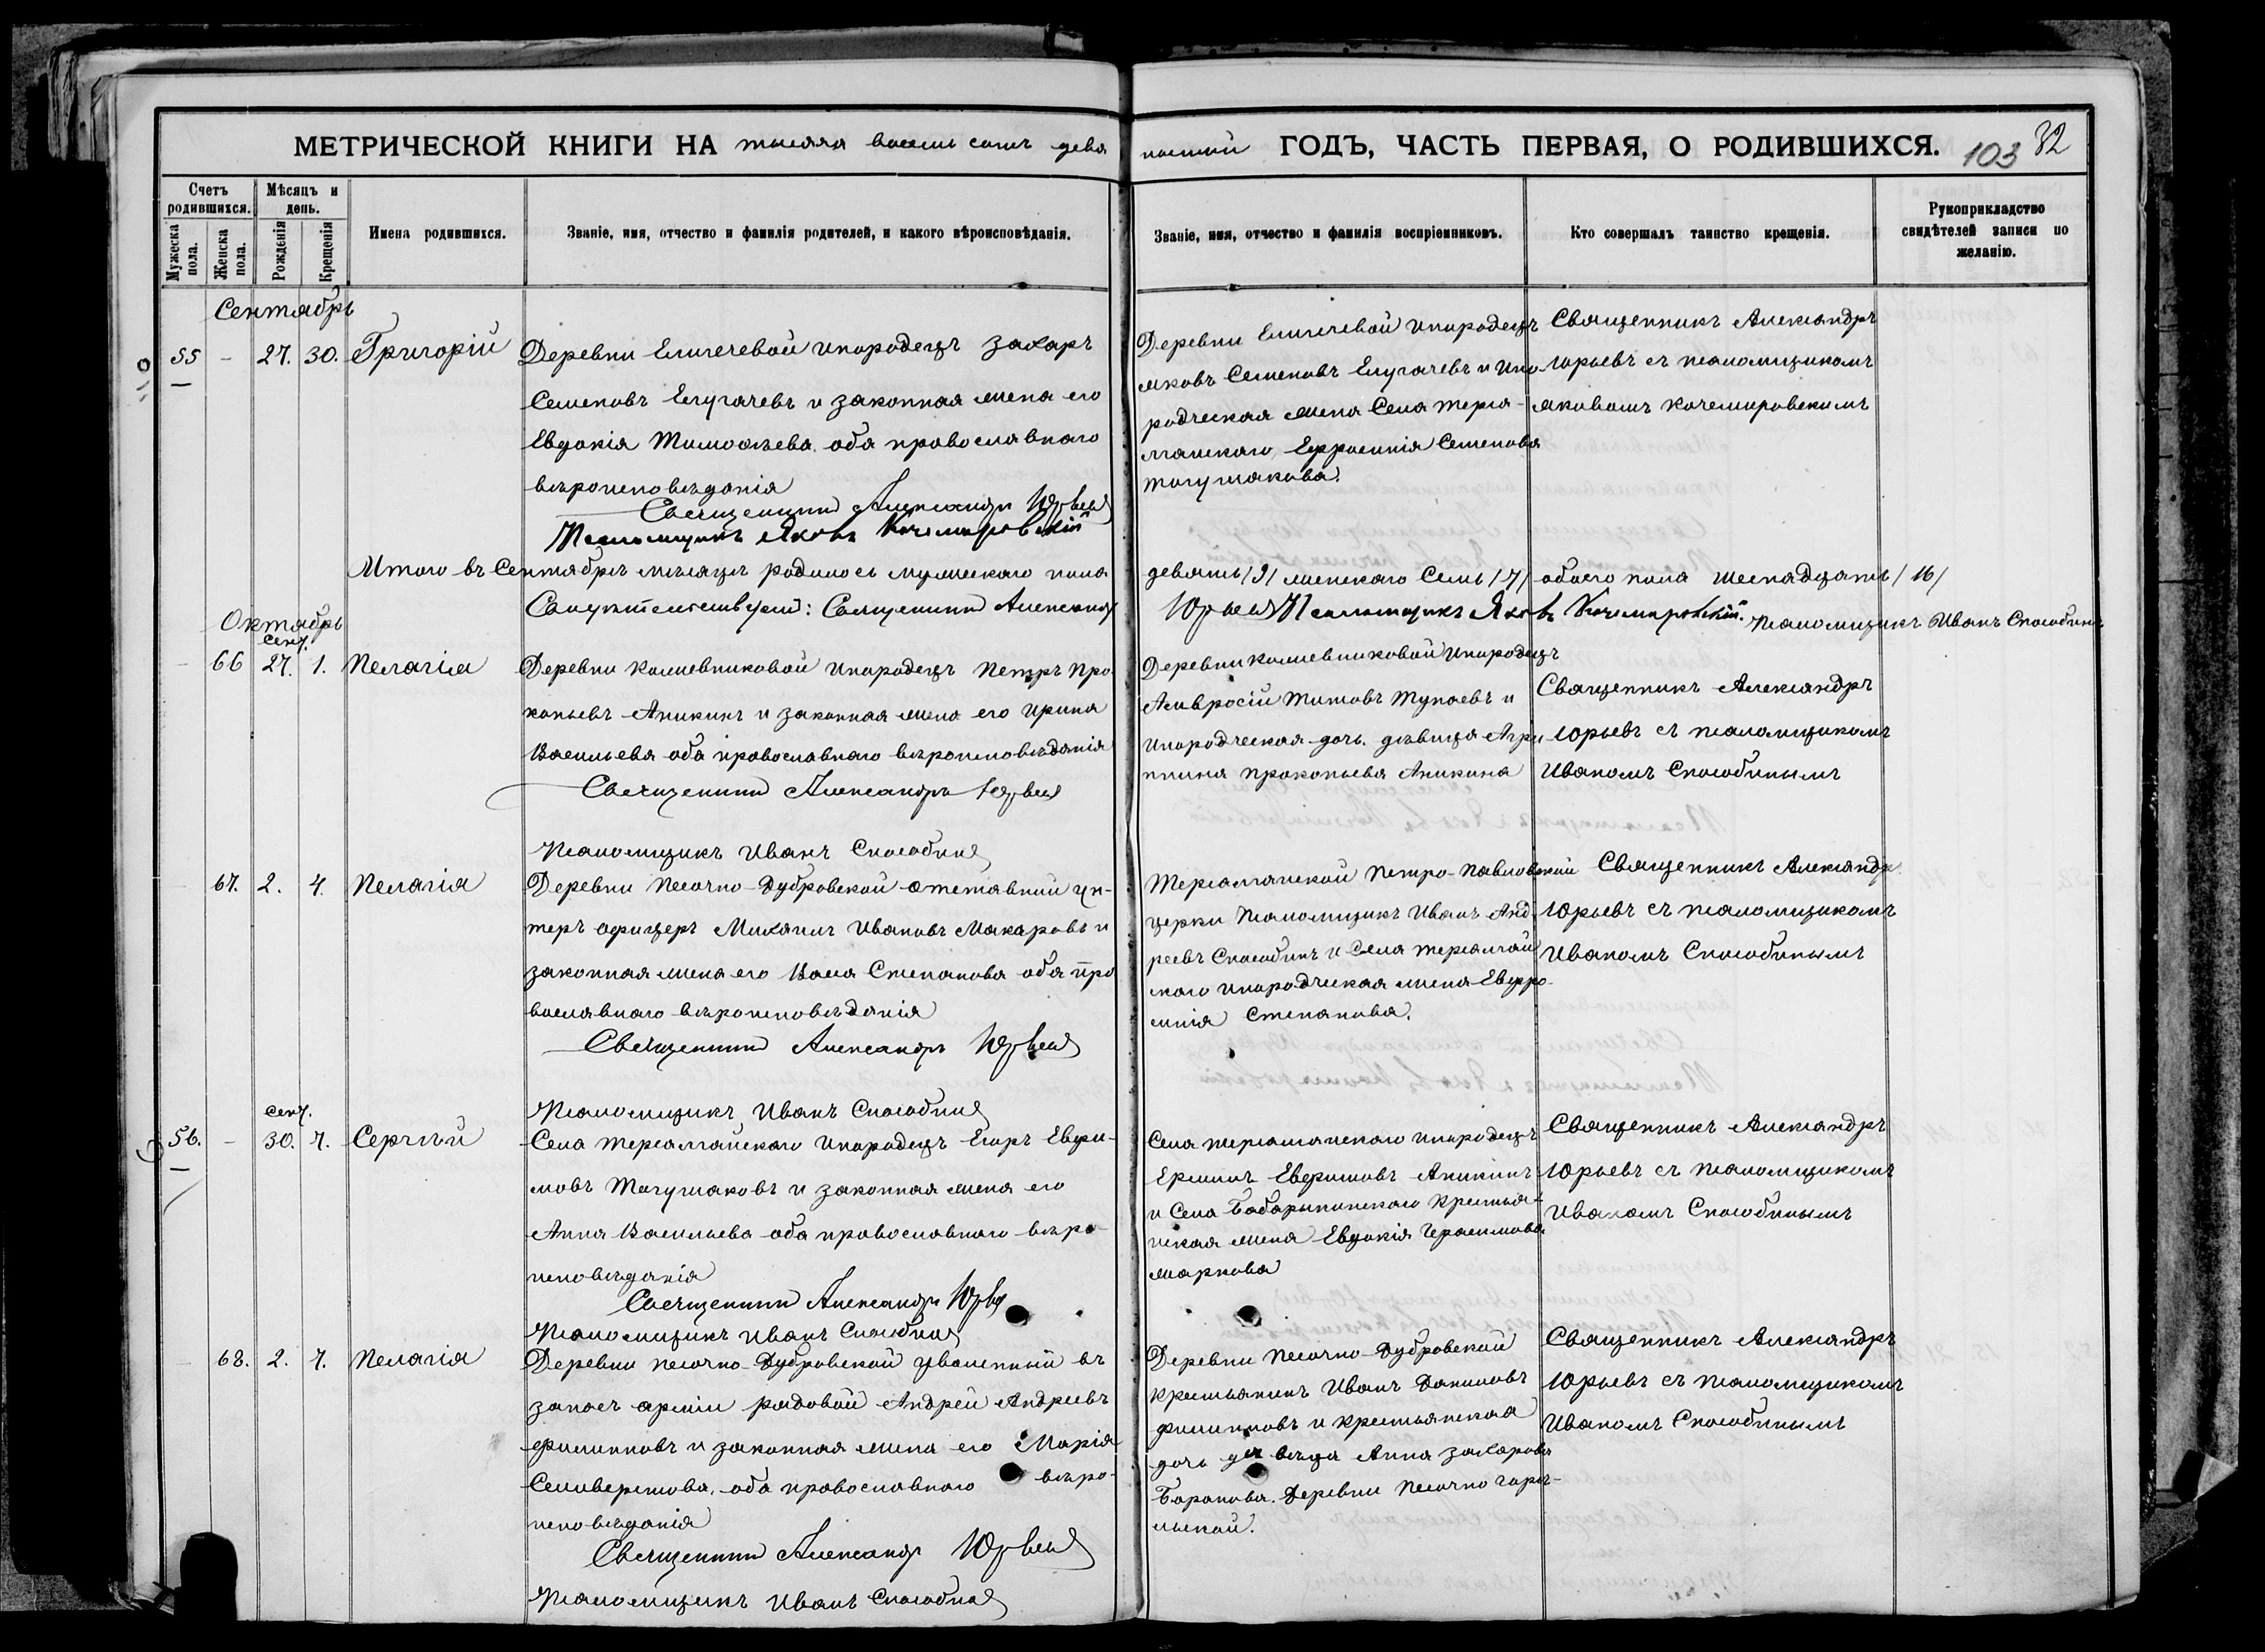 МЕТРИЧЕСКОЙ КНИГИ НА тысяча восемь сотъ девя
ностый ГОДЪ, ЧАСТЬ ПЕРВАЯ, О РОДИВШИХСЯ.
103 32
Счетъ родившихся.
Мѣсяцъ и день.
Мужеска пола.
Женска пола.
Рожденія
Крещенія
Имена родившихся.
Званіе, имя, отчество и фамилія родителей, и какого вѣроисповѣданія.
Званіе, имя, отчество и фамилія воспріемниковъ.
Кто совершалъ таинство крещенія.
Рукоприкладство свидѣтелей записи по желанію.
Сентябрь
55 - 27. 30. Григорій
Деревни Елигечевой инородецъ Захаръ
Семеновъ Елугачевъ и законная жена его
Евдокія Тимоѳеева. оба православнаго
вѣроисповѣданія
Священникъ Александръ Юрьевъ
Псаломщикъ Яковъ Кочемировскій
Деревни Елигечевой инородецъ
Яковъ Семеновъ Елугачевъ и ино
родческая жена Села Терса-
Ефросинія Семенова
Тогумакова.
Священникъ Александръ
Юрьевъ съ псаломщикомъ
Яковомъ Кочемировскимъ
Итого въ Сентябрѣ мѣсяцѣ родилось мужескаго пола
девять /9/ женскаго Семь /7/ обоего пола шестнадцать /16/
Свидѣтельствуемъ: Священникъ Александръ
Юрьевъ Псаломщикъ Яковъ Кочемировскій. Псаломщикъ Иванъ Способинъ
Октябрь
Сент.
- 66 27. 1. Пелагія
Деревни Колмевниковой инородецъ Петръ Про
копьевъ Аникинъ и законная жена его Ирина
Васильева оба православнаго вѣроисповѣданія
Священникъ Александръ Юрьевъ
Псаломщикъ Иванъ Способинъ
Деревни Колмевниковой инородецъ
Амвросій Титовъ Тупаевъ и
инородческая дочь. дѣвица Агри
пина Прокопьева Аникина
Священникъ Александръ
Юрьевъ съ псаломщикомъ
Иваномъ Способинымъ
- 67. 2. 4. Пелагія
Деревни Песочно-Дубровской отставной ун-
теръ офицеръ Михаилъ Ивановъ Макаровъ и
законная жена его Васса Степанова оба пра
вославнаго вѣроисповѣданія
Священникъ Александръ Юрьевъ
Псаломщикъ Иванъ Способинъ
Терсалгайской Петро-Павловской
церкви Псаломщикъ Иванъ Анд
реевъ Способинъ и Села Терсалгай
скаго инородческая жена Евфро-
синія Степанова.
Священникъ Александръ
Юрьевъ съ псаломщикомъ
Иваномъ Способинымъ
сент.
56. - 30. 7. Сергѣй
Села Терсалгайскаго инородецъ Егоръ Евфи-
мовъ Тогумаковъ и законная жена его
Анна Васильева оба православнаго вѣро-
исповѣданія
Священникъ Александръ Юрьевъ
Псаломщикъ Иванъ Способинъ
Села Терсалгайскаго инородецъ
Ермилъ Евфимовъ Аникинъ
и Села Бабарыкинскаго Крестья-
нская жена Евдокія Герасимова
Маркова
Священникъ Александръ
Юрьевъ съ псаломщикомъ
Иваномъ Способинымъ
- 68. 2. 7. Пелагія
Деревни Песочно-Дубровской уволенный въ
запасъ арміи рядовой Андрей Андреевъ
Филипповъ и законная жена его Марія
Селиверстова, оба православнаго вѣро-
исповѣданія
Священникъ Александръ Юрьевъ
Псаломщикъ Иванъ Способинъ
Деревни Песочно-Дубровской
крестьянинъ Иванъ Даниловъ
Филипповъ и крестьянская
дочь дѣвица Анна Захарова
Баранова. Деревни Песочно Горе-
льской.
Священникъ Александръ
Юрьевъ съ псаломщикомъ
Иваномъ Способинымъ